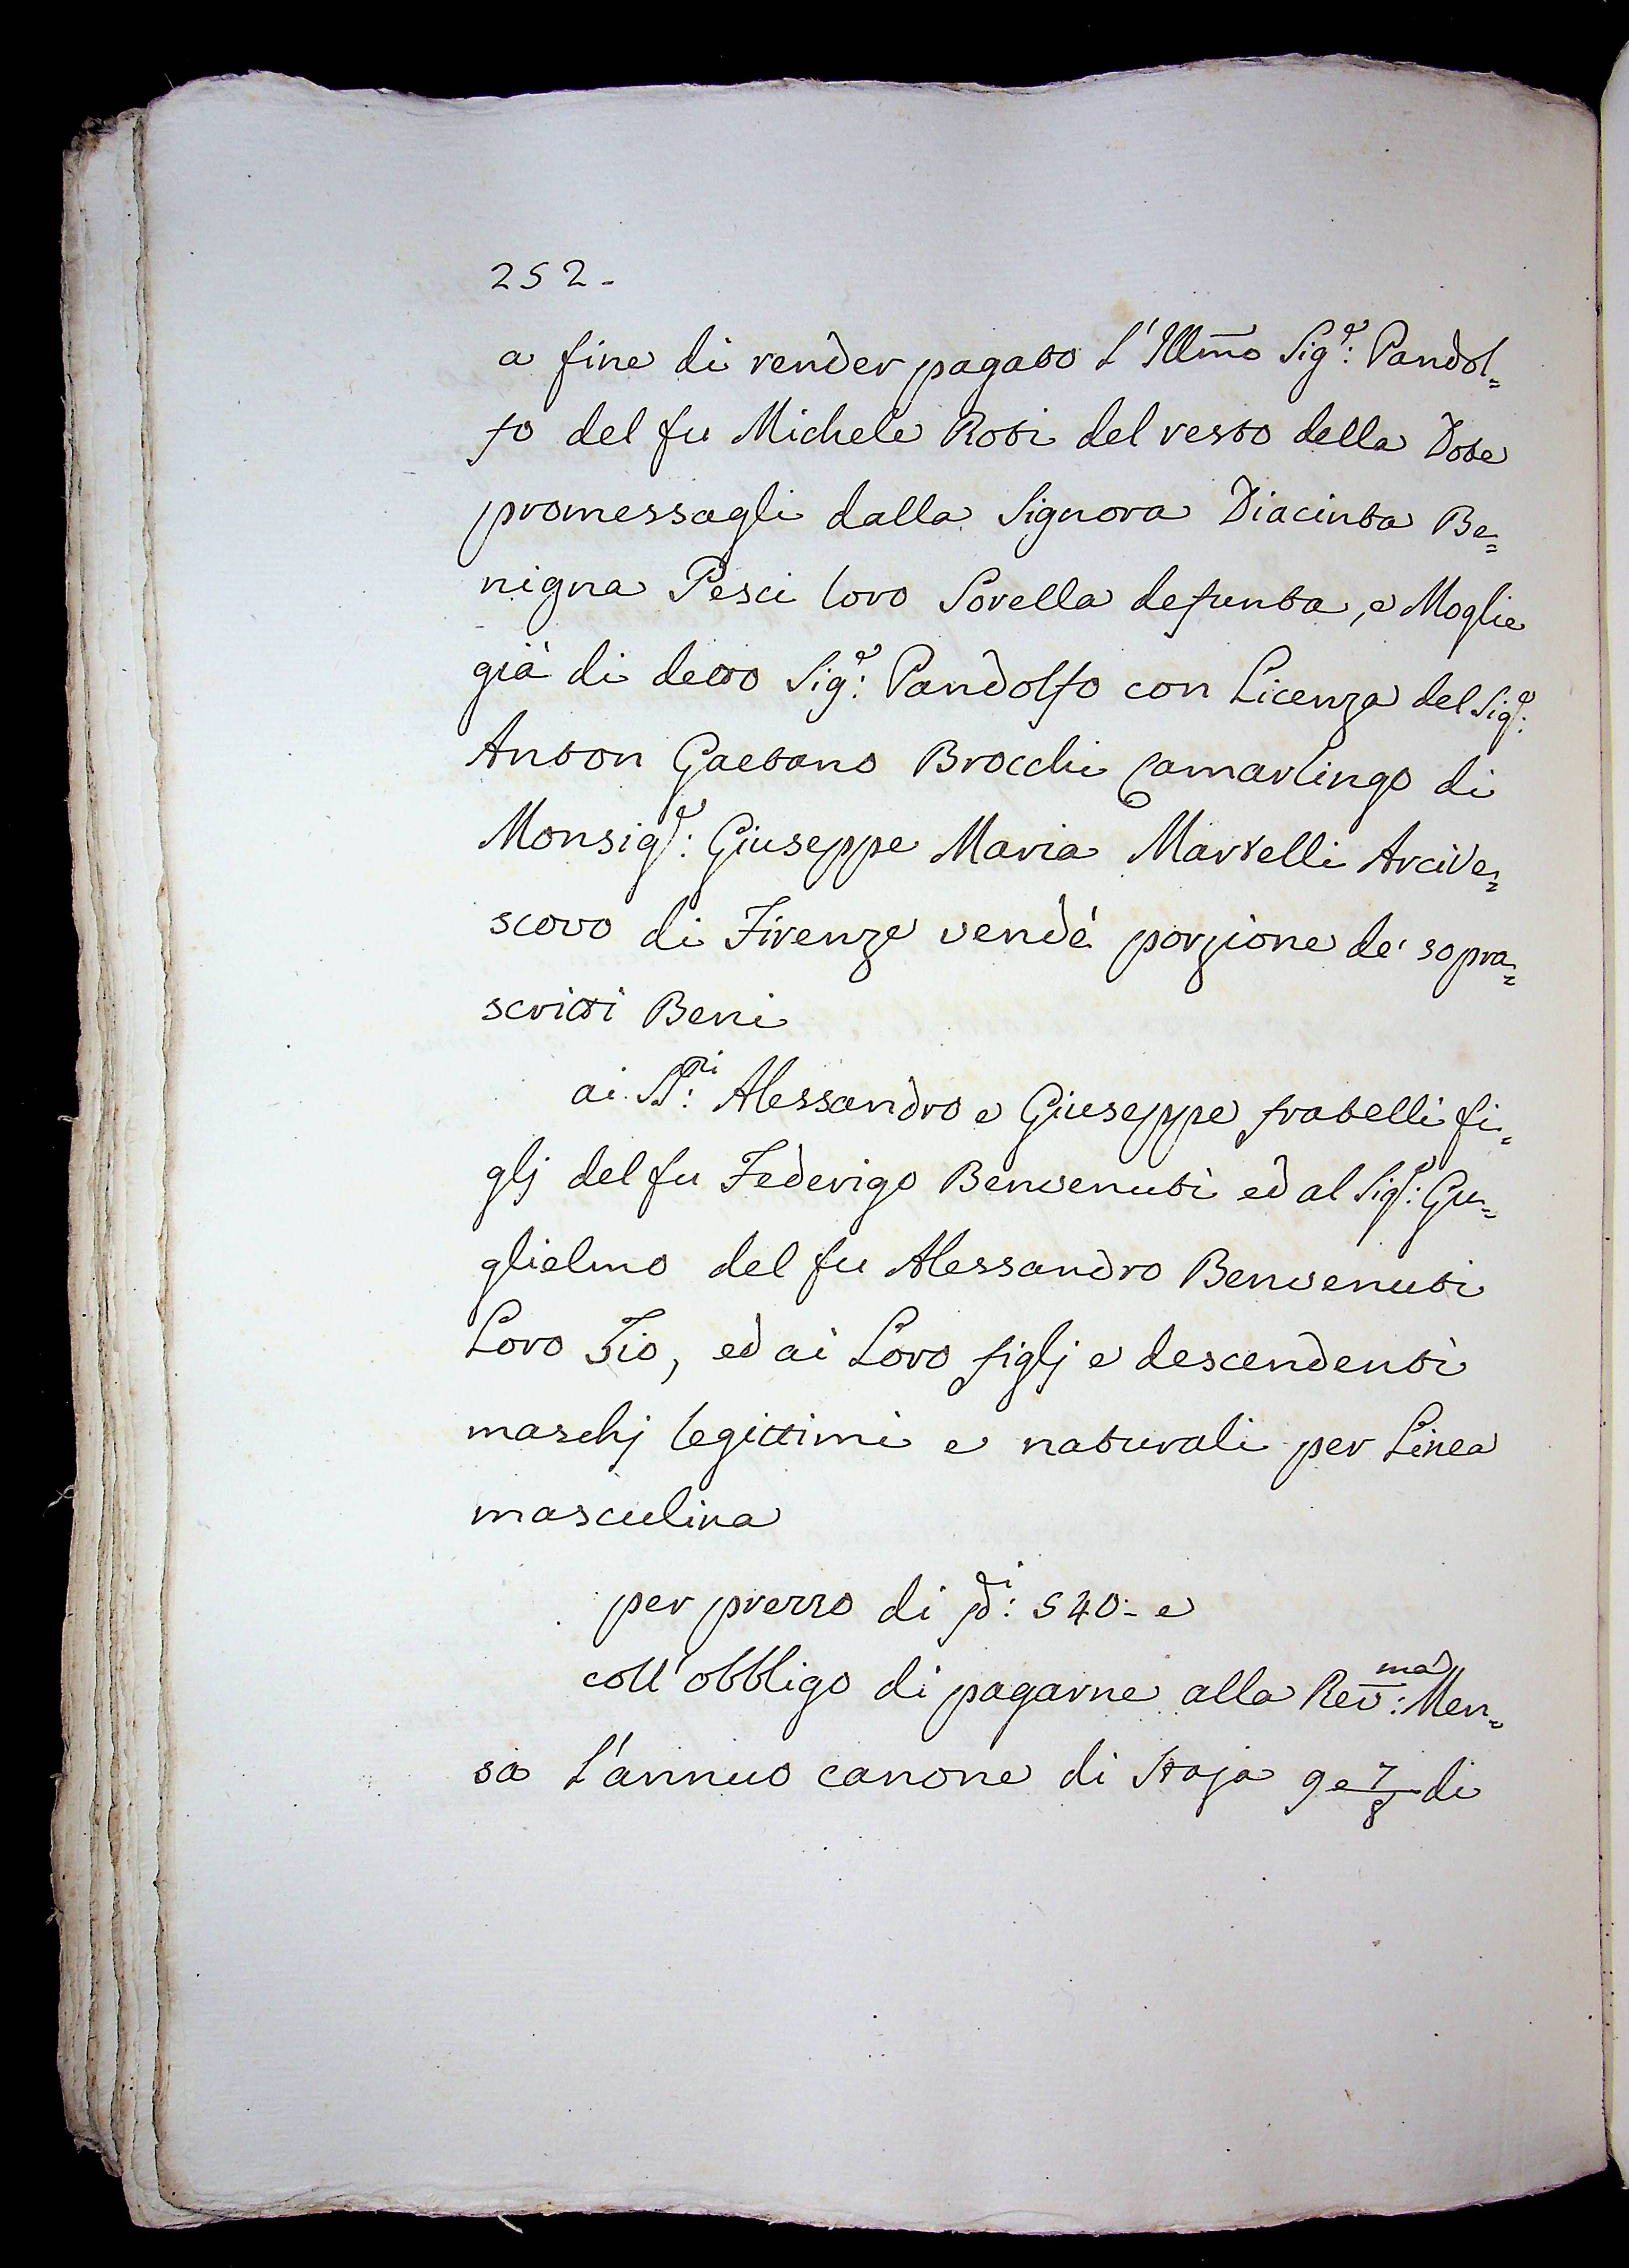 252.
a fine di render pagato l'Illmo Sig.re: Pandol=
fo del fu Michele Roti del resto della Dote
promessagli dalla Signora Diacinta Be=
nigna Pesci loro Sorella defunta, e Moglie
già di detto Sig.re: Pandolfo con Licenza del Sig.re:
Anton Gaetano Brocchi Camarlingo di
Monsig.re: Giuseppe Maria Martelli Arcive=
scovo di Firenze vendè porzione de' sopra=
scritti Beni
ai SS.ri: Alessandro e Giuseppe fratelli fi=
glj del fu Federigo Benvenuti ed al Sig.re: Gu=
glielmo del fu Alessandro Benvenuti
Loro Zio, ed ai Loro figlj e descendenti
maschj legittimi e naturali per Linea
masculina
per prezzo di 540.- e
coll'obbligo di pagarne alla Rev.ma: Men=
sa l'annuo canone di Staja 9 e 7/8 di